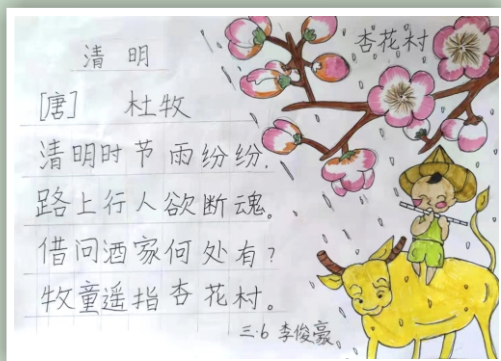 清明
[唐] 杜牧
清明时节雨纷纷.
路上行人欲断魂。
借问酒家何处有?
牧童遥指杏花村。
杏花村
三·6 李俊豪